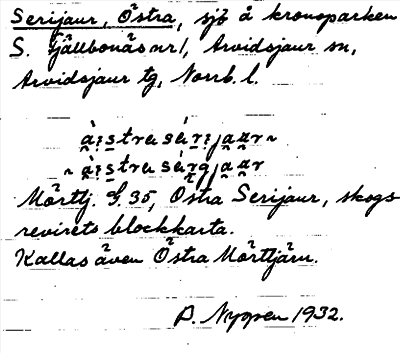 Serijaur, Östra, sjö å kronoparken
S. Fjällbonäs nr 1, Arvidsjaur sn,
Arvidsjaur tg, Norrb. l.
Mörttj. G. 35, Östra Serijaur, skogs
revirets blockkarta.
Kallas även Östra Mörttjärn.
P. Nygren 1932.